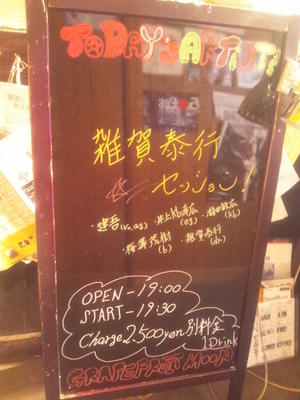 TODAY'S ARTIST!
雑賀泰行
☆セッション!
・建吾(Vo,ag)
(eg)
(kb)
(b)
・雑賀泰行(dr)
OPEN-19:00
START-19:30
Charge2.500yen 別料金
1Drink
GRAPEFRUIT MOON